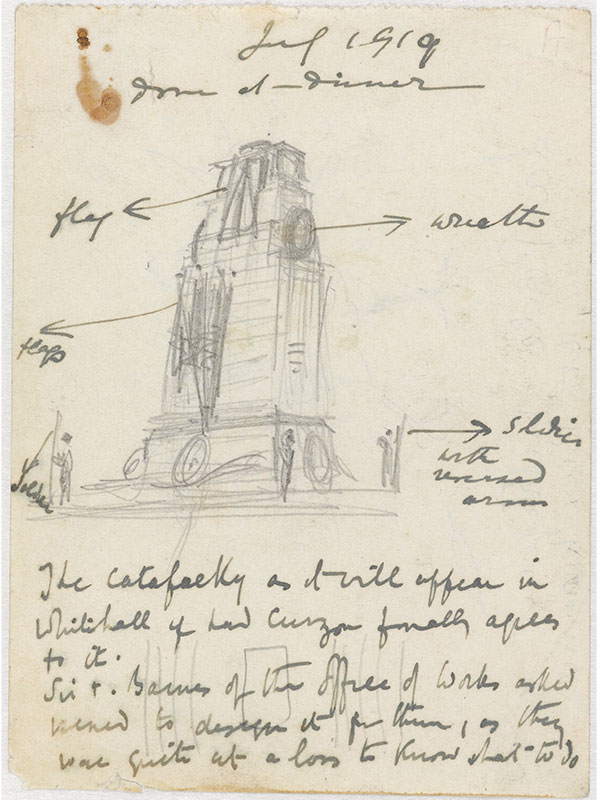 A
July 1919
done at dinner
flag
wreath
flags
Soldier
Soldier
with
reversed
arms
The catafalky as it will appear in
Whitehall if Lord Curzon finally agrees
to it.
Sir F. Baines of the Office of Works asked
to design it for them, as they
were quite at a loss to know what to do